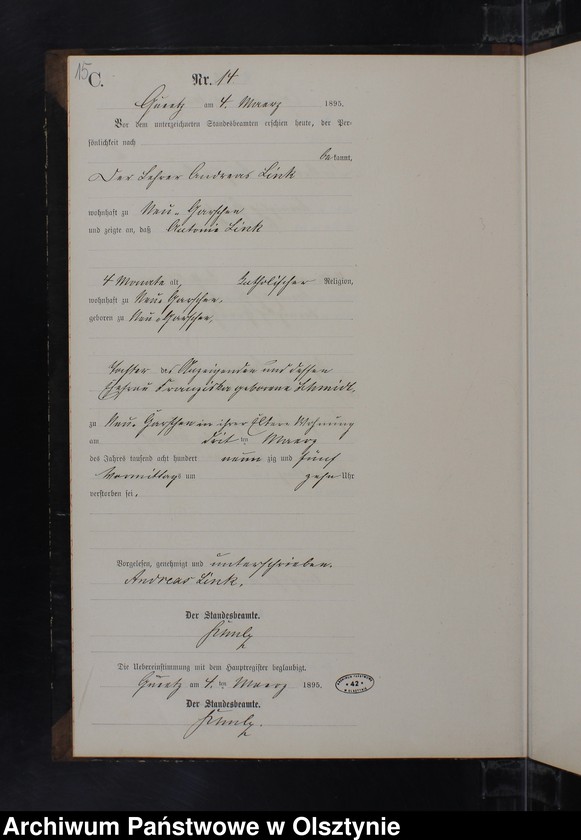 15
C.
Nr. 14
am 4. Maerz 1895.
Vor dem unterzeichneten Standesbeamten erschien heute, der Per-
sönlichkeit nach
be kannt,
Der Lehrer Andreas Link
wohnhaft zu Neu-Garschen
und zeigte an, daß Antonie Link
4 Monate alt, katholischer Religion,
wohnhaft zu Neu-Garschen,
geboren zu Neu-Garschen,
Tochter des Anzeigenden und dessen
Ehefrau Franziska geborene Schmidt,
zu Neu-Garschen in ihrer Eltern Wohnung
am ten Maerz
des Jahres tausend acht hundert neun zig und fünf
Vormittags um zehn Uhr
verstorben sei.
Vorgelesen, genehmigt und unterschrieben.
Andreas Link.
Der Standesbeamte.
Die Uebereinstimmung mit dem Hauptregister beglaubigt.
am 4. ten Maerz 1895.
Der Standesbeamte.
42
Archiwum Państwowe w Olsztynie